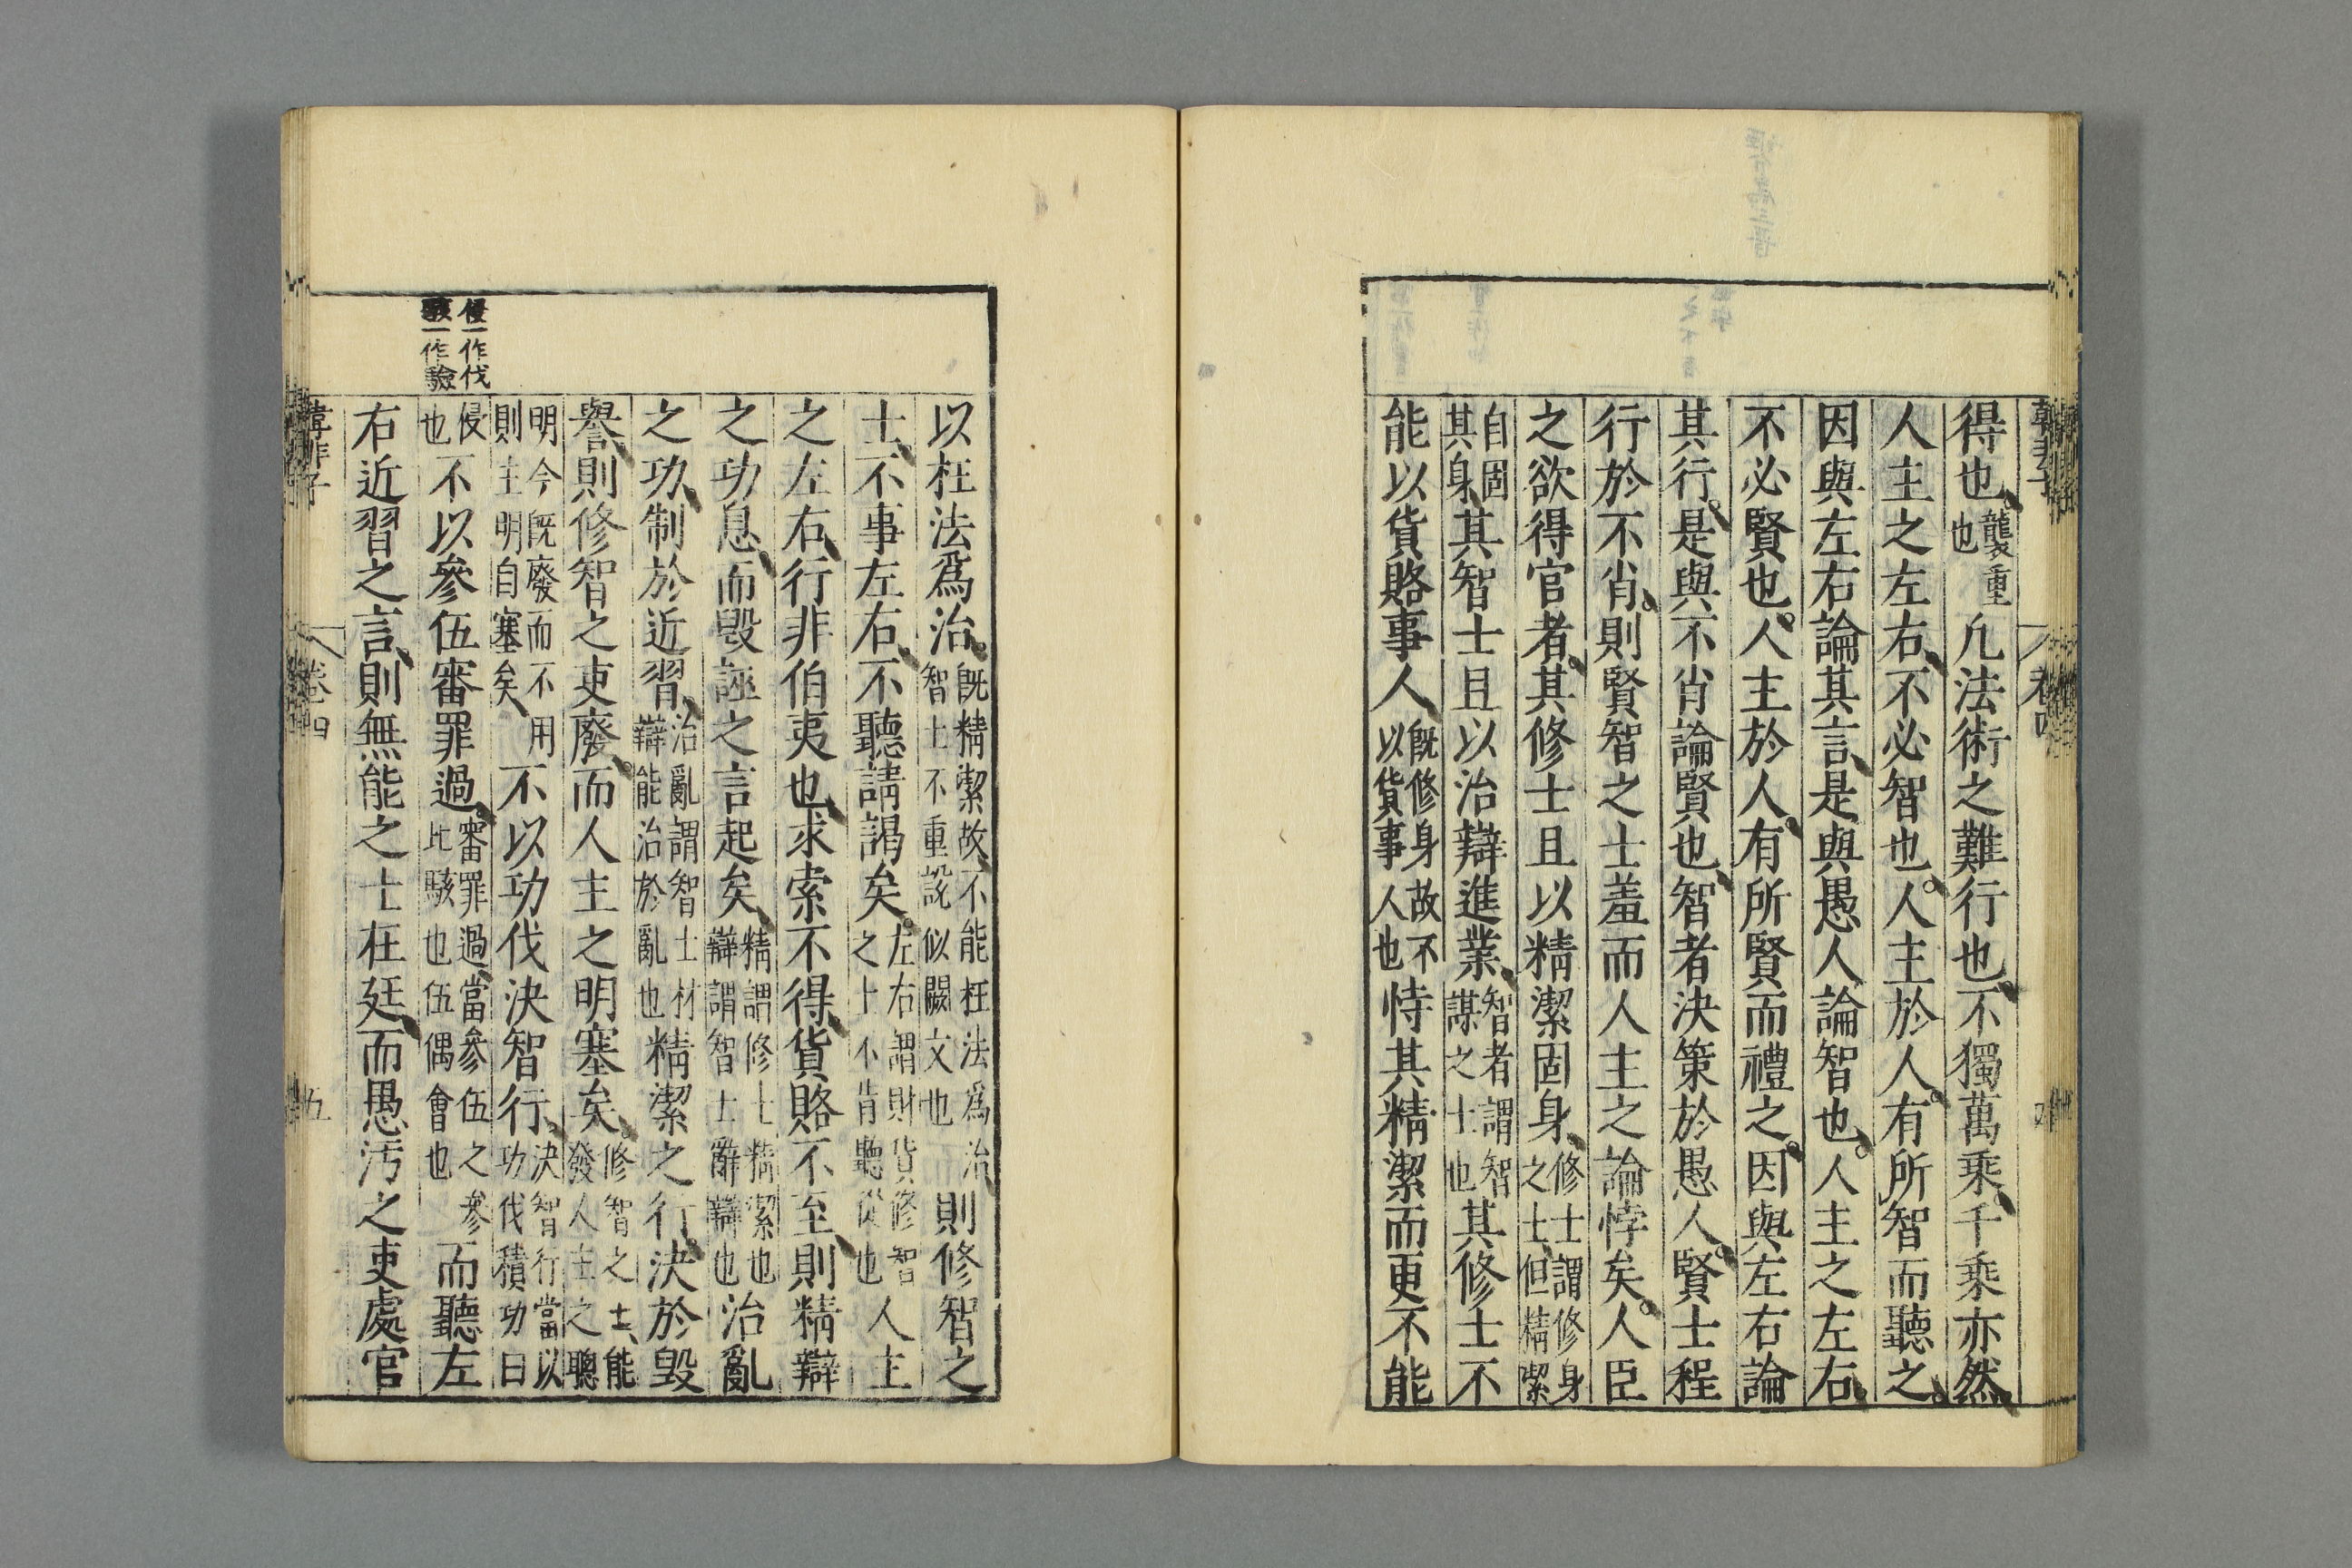 韓非子
卷四
得也襲重也凡法術之難行也不獨萬乘千乘亦然
人主之左右不必智也人主於人有所智而聽之
因與左右論其言是與愚人論智也人主之左右
不必賢也人主於人有所賢而禮之因與左右論
其行是與不肖論賢也智者決策於愚人賢士程
行於不肖則賢智之士羞而人主之論悖矣人臣
之欲得官者其修士且以精潔固身修士謂修身之士但精潔
自固其身其智士且以治辯進業智者謂智謀之士也其修士不
能以貨賂事人既修身故不以貨事人也恃其精潔而更不能
以枉法爲治既精潔故不能枉法爲治智士不重説似闕文也則修智之
士不事左右不聽請謁矣左右謂財貨修智之士不肯聽從也人主
之左右行非伯夷也求索不得貨賂不至則精辯
之功息而毀誣之言起矣精謂修士精潔也辯謂智士辭辯也治亂
之功制於近習治亂謂智士材辯能治於亂也精潔之行決於毀
譽則修智之吏廢而人主之明塞矣修智之士能發人主之聰
明今既廢而不用則主明自塞矣不以功伐決智行決智行當以功伐積功曰
侵也不以參伍審罪過審罪過當參伍之參比駭也伍偶會也而聽左
右近習之言則無能之士在廷而愚汚之吏處官
侵一作伐
駭一作驗
韓非子
卷四
五